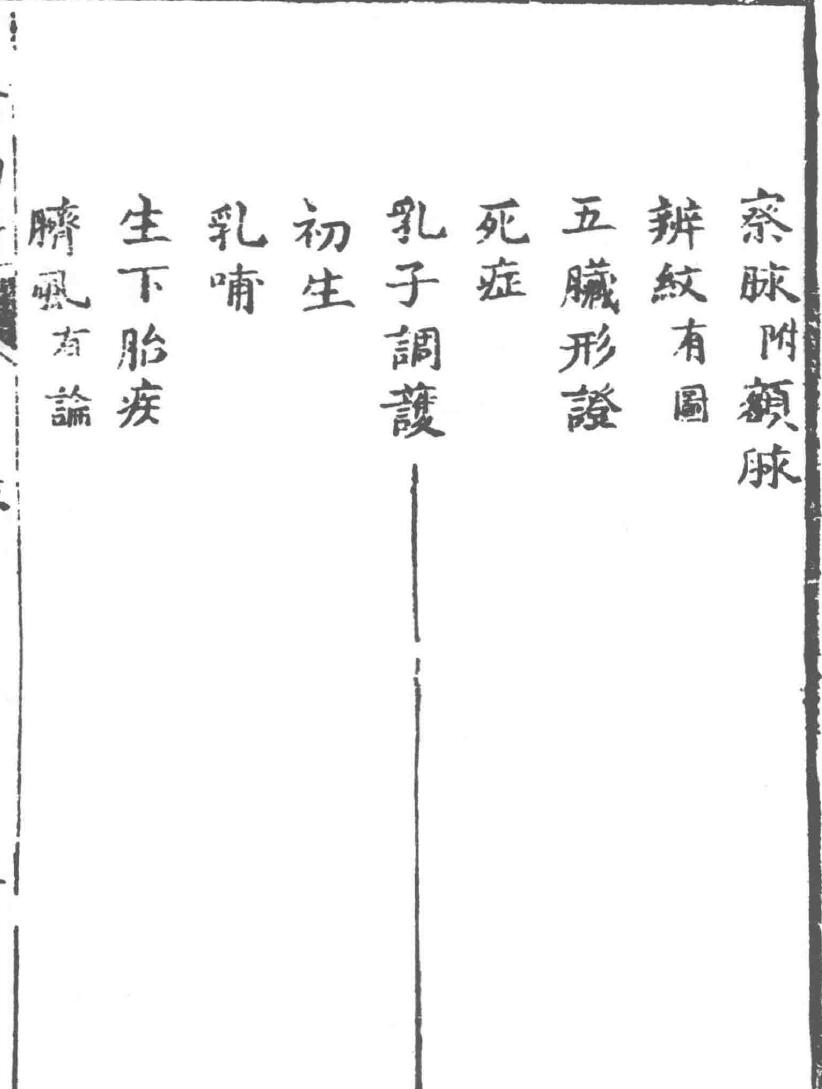 察脉附額脉
辨紋有圖
五臟形證
死症
乳子調護
初生
乳哺
生下胎疾
臍風有論